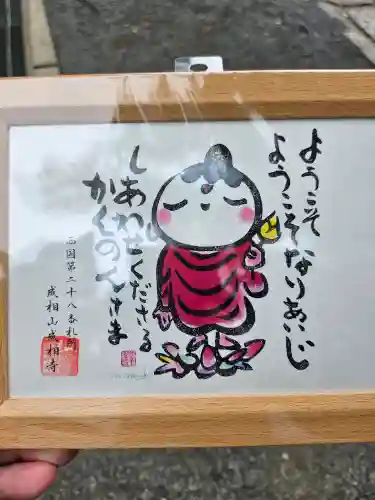 ようこそ
ようこそなりあいじ
しあわせくださる
かんのんさま
西国第二十八番札所
成相山成相寺